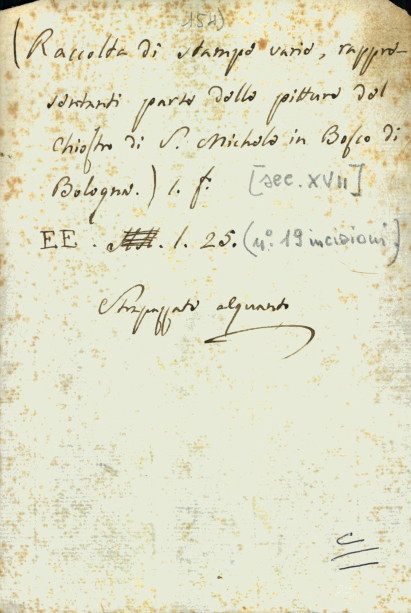 154)
(Raccolta di stampe varie, rappre-
sentanti parte delle pitture del
Chiostro di S. Michele in Bosco di
Bologna.) 1. f. [sec. XVII]
EE. . 1. 25. (n.° 19 incisioni)
Strapazzato alquanto